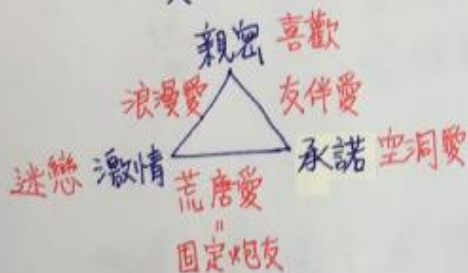 親密 喜歡
浪漫愛 友伴愛
迷戀 激情 承諾 空洞愛
荒唐愛
=
固定炮友